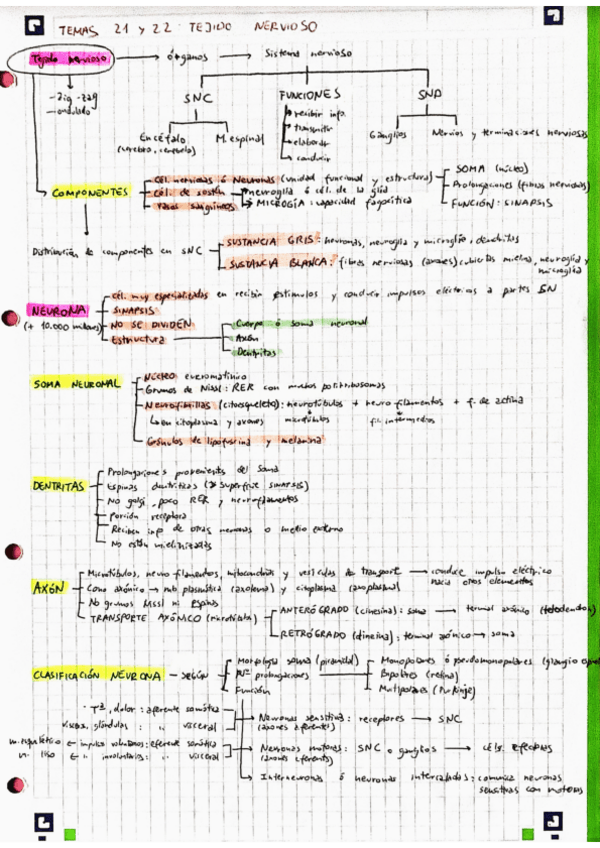 TEMAS 21 y 22: TEJIDO NERVIOSO
Tejido nervioso → órganos → Sistema nervioso
- zig-zag
- ondulado
SNC FUNCIONES SNP
recibir info.
transmitir
elaborar
conducir
Encéfalo (cerebro, cerebelo) M. espinal
Ganglios Nervios y terminaciones nerviosas
COMPONENTES
Cél. nerviosas ó Neuronas (unidad funcional y estructura)
SOMA (núcleo)
Prolongaciones (fibras nerviosas)
FUNCIÓN: SINAPSIS
Cél. de sostén → neuroglía ó cél. de la glía
→ MICROGÍA: capacidad fagocítica
Vasos sanguíneos
Distribución de componentes en SNC
SUSTANCIA GRIS: neuronas, neuroglia y microglia, dendritas
SUSTANCIA BLANCA: fibras nerviosas (axones) cubiertos mielina, neuroglia y microglia
NEURONA
(+ 10.000 millones)
Cél. muy especializadas en recibir estímulos y conducir impulsos eléctricos a partes SN
SINAPSIS
NO SE DIVIDEN
Estructura
Cuerpo ó soma neuronal
Axón
Dentritas
SOMA NEURONAL
Núcleo eucromatínico
Grumos de Nissl: RER con muchos polirribosomas
Neurofibrillas (citoesqueleto): neurotúbulos + neurofilamentos + f. de actina
↳ en citoplasma y axones microtúbulos fil. intermedios
Gránulos de lipofuscina y melanina
DENTRITAS
Prolongaciones provenientes del soma
Espinas dentríticas (superficie SINAPSIS)
No golgi, poco RER y neurofilamentos
Porción receptora
Reciben info de otras neuronas o medio externo
No están mielinizadas
AXÓN
Microtúbulos, neurofilamentos, mitocondrias y vesículas de transporte → conduce impulso eléctrico hacia otros elementos
Cono axónico → mb plasmática (axolema) y citoplasma (axoplasma)
No grumos Nissl ni Espinas
TRANSPORTE AXÓNICO (microtúbulos)
ANTERÓGRADO (cinesina): soma → terminal axónico (telodendron)
RETRÓGRADO (dineína): terminal axónico → soma
CLASIFICACIÓN NEURONA - según
Morfología soma (piramidal)
Nº prolongaciones
Función
Monopolares ó pseudomonopolares (ganglio
Bipolares (retina)
Multipolares (Purkinje)
Tª, dolor: aferente somática
glándulas: " visceral
Neuronas sensitivas: receptores → SNC
(axones aferentes)
m. esquelético ← impulsos voluntarios: eferente somática
m. liso ← " involuntarios: " visceral
Neuronas motoras: SNC o ganglios → céls. efectoras
(axones eferentes)
Interneuronas ó neuronas intercaladas: comunica neuronas sensitivas con motoras